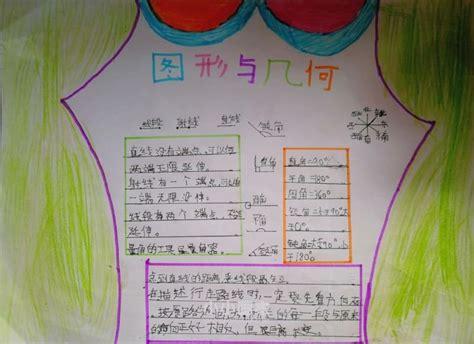 图形与几何
线段 射线 直线 锐角
直线没有端点,可以向
两端无限延伸。
射线有一个端点,可以向
一端无限延伸。
线段有两个端点,不能
延伸。
量角的工具是量角器。
直角
平角
直角=90°
平角=180°
周角=360°
锐角 小于90°大
于0°。
钝角 大于90°,小
于180°
点到直线的距离,垂线段最
在描述行走路线时,一定要先看方向,再
每一段与原来
的方向正好相反,但距离